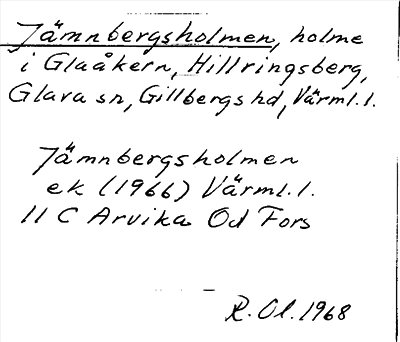 Jämnbergsholmen, holme
i Glaåkern, Hillringsberg,
Glava sn, Gillbergs hd, Värml. l.
Jämnbergsholmen
ek (1966) Värml. l.
11 C Arvika Od Fors
R. Ol. 1968